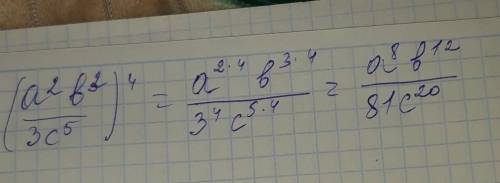 (a²b³/3c⁵)⁴ = a²·⁴ b³·⁴/3⁴ c⁵·⁴ = a⁸b¹²/81c²⁰